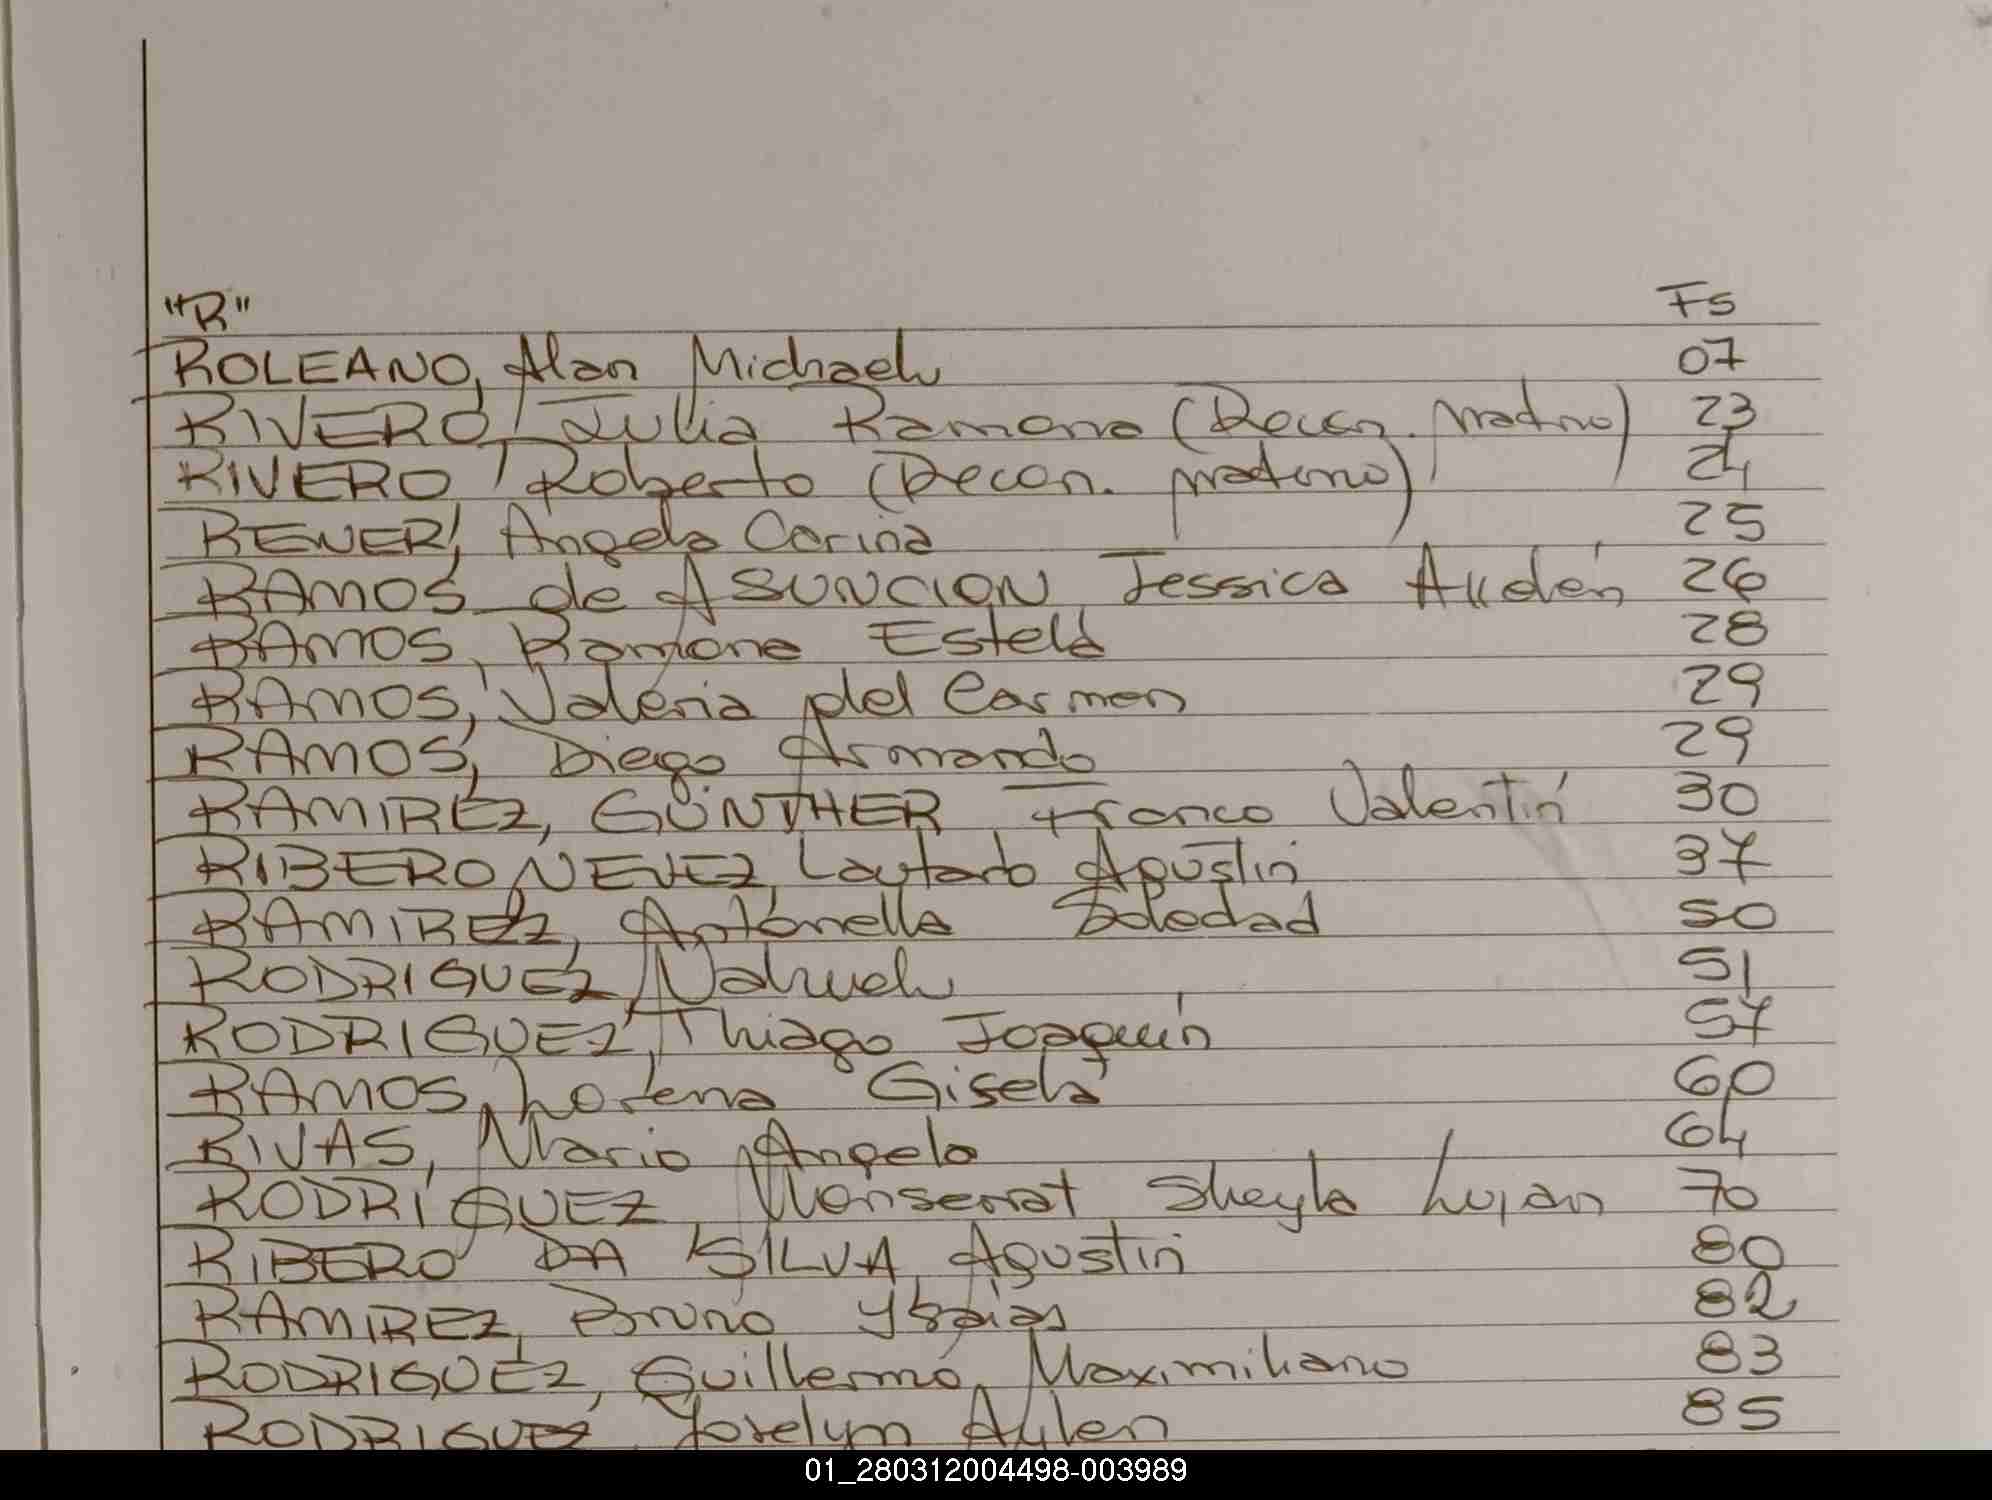 "R" Fs
ROLEANO, Alan Michael 07
RIVERO, Julia Ramona (Recon. materno) 23
RIVERO, Roberto (Recon. materno) 24
RENER, Angela Carina 25
RAMOS de ASUNCION, Jessica 26
RAMOS, Ramona Estela 28
RAMOS, Valeria del Carmen 29
RAMOS, Diego Armando 29
RAMIREZ, GÜNTHER Franco Valentín 30
RIBERO NEVEZ, Lautaro Agustin 37
RAMIREZ, Antonella Soledad 50
RODRIGUEZ, Nahuel 51
RODRIGUEZ, Thiago Joaquín 57
RAMOS, Lorena Gisela 60
RIVAS, Mario Angelo 64
RODRIGUEZ, Monserrat Sheyla Lujan 70
RIBERO DA SILVA, Agustin 80
RAMIREZ, Bruno 82
RODRIGUEZ, Guillermo Maximiliano 83
RODRIGUEZ, Joselyn Aylen 85
01_280312004498-003989